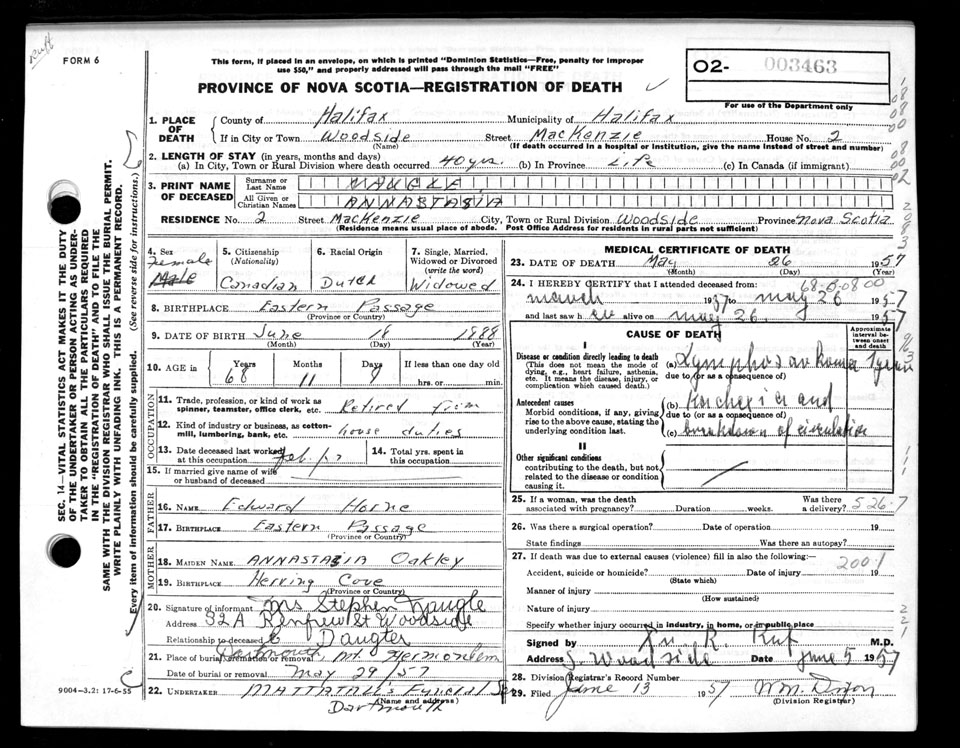 FORM 6
This form, if placed in an envelope, on which is printed "Dominion Statistics—Free, penalty for improper
use $50," and properly addressed will pass through the mail "FREE"
PROVINCE OF NOVA SCOTIA—REGISTRATION OF DEATH
O2- 003463
For use of the Department only
1. PLACE OF DEATH County of Halifax Municipality of Halifax
If in City or Town Woodside Street MacKenzie House No. 2
(Name) (If death occurred in a hospital or institution, give the name instead of street and number)
2. LENGTH OF STAY (in years, months and days)
(a) In City, Town or Rural Division where death occurred 40 yrs. (b) In Province Life (c) In Canada (if immigrant)
3. PRINT NAME OF DECEASED Surname or Last Name
All Given or Christian Names ANNASTASIA
RESIDENCE No. 2 Street MacKenzie City, Town or Rural Division Woodside Province Nova Scotia
(Residence means usual place of abode. Post Office Address for residents in rural parts not sufficient)
4. Sex Female Male
5. Citizenship (Nationality) Canadian
6. Racial Origin Dutch
7. Single, Married, Widowed or Divorced (write the word) Widowed
8. BIRTHPLACE Eastern Passage
(Province or Country)
9. DATE OF BIRTH June 18 1888
(Month) (Day) (Year)
10. AGE in Years 68 Months 11 Days If less than one day old hrs. or min.
OCCUPATION
11. Trade, profession, or kind of work as spinner, teamster, office clerk, etc. Retired from
12. Kind of industry or business, as cotton-mill, lumbering, bank, etc. house duties
13. Date deceased last worked at this occupation Feb.
14. Total yrs. spent in this occupation
15. If married give name of wife or husband of deceased
FATHER
16. NAME Edward Horne
17. BIRTHPLACE Eastern Passage
(Province or Country)
MOTHER
18. MAIDEN NAME ANNASTASIA Oakley
19. BIRTHPLACE Herring Cove
(Province or Country)
20. Signature of informant Mrs Stephen Naugle
Address 32A Renfrew St Woodside
Relationship to deceased Daugter
21. Place of burial, cremation or removal Dartmouth, Mt. Hermon Cem
Date of burial or removal May 29/57
22. UNDERTAKER MATTATALL'S Funeral
(Name and address)
Dartmouth
9004-3.2: 17-6-55
MEDICAL CERTIFICATE OF DEATH
23. DATE OF DEATH May 26 1957
(Month) (Day) (Year)
24. I HEREBY CERTIFY that I attended deceased from:
March 1957 to May 26 1957
and last saw h er alive on May 26 1957
CAUSE OF DEATH
Approximate interval between onset and death
I
Disease or condition directly leading to death
(This does not mean the mode of dying, e.g., heart failure, asthenia, etc. It means the disease, injury, or complication which caused death.)
(a) Lymphosarkoma 1 year
due to (or as a consequence of)
Antecedent causes
Morbid conditions, if any, giving rise to the above cause, stating the underlying condition last.
(b) Kachexia and
due to (or as a consequence of)
(c) breakdown of circulation
II
Other significant conditions
contributing to the death, but not related to the disease or condition causing it.
25. If a woman, was the death associated with pregnancy? Duration weeks. Was there a delivery? 526.7
26. Was there a surgical operation? Date of operation 19
State findings Was there an autopsy?
27. If death was due to external causes (violence) fill in also the following:—
2001
Accident, suicide or homicide? Date of injury 19
(State which)
Manner of injury
(How sustained)
Nature of injury
Specify whether injury occurred in industry, in home, or in public place
Signed by M.D.
Address Woodside Date June 5 1957
28. Division Registrar's Record Number
29. Filed June 13 1957 Wm. Dixon
(Division Registrar)
SEC. 14—VITAL STATISTICS ACT MAKES IT THE DUTY
OF THE UNDERTAKER OR PERSON ACTING AS UNDER-
TAKER TO OBTAIN ALL THE PARTICULARS REQUIRED
IN THE "REGISTRATION OF DEATH" AND TO FILE THE
SAME WITH THE DIVISION REGISTRAR WHO SHALL ISSUE THE BURIAL PERMIT.
WRITE PLAINLY WITH UNFADING INK. THIS IS A PERMANENT RECORD.
Every item of Information should be carefully supplied. (See reverse side for instructions.)